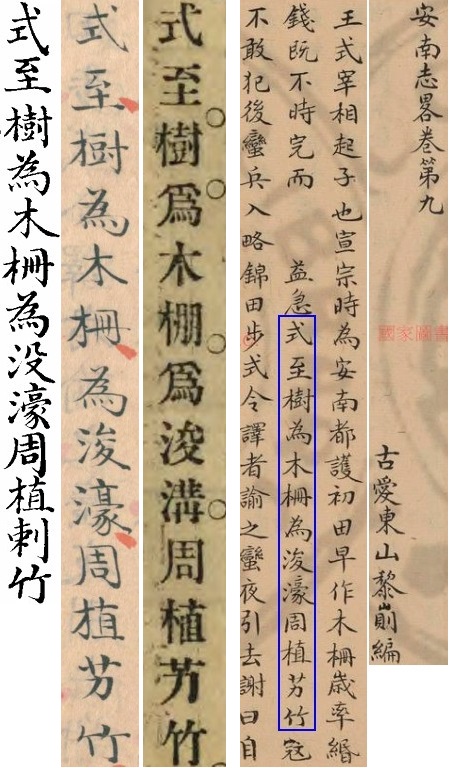 安南志畧卷第九
國家圖書
古愛東山黎崱編
王式宰相起子也宣宗時為安南都護初田早作木柵歲率緡
錢既不時完而　益急式至樹為木柵為浚濠周植芀竹寇
不敢犯後蠻兵入略錦田步式令譯者諭之蠻夜引去謝曰自
式至樹爲木棚爲浚溝周植艻竹
式至樹為木柵為浚濠周植芀竹
式至樹為木柵為没濠周植刺竹